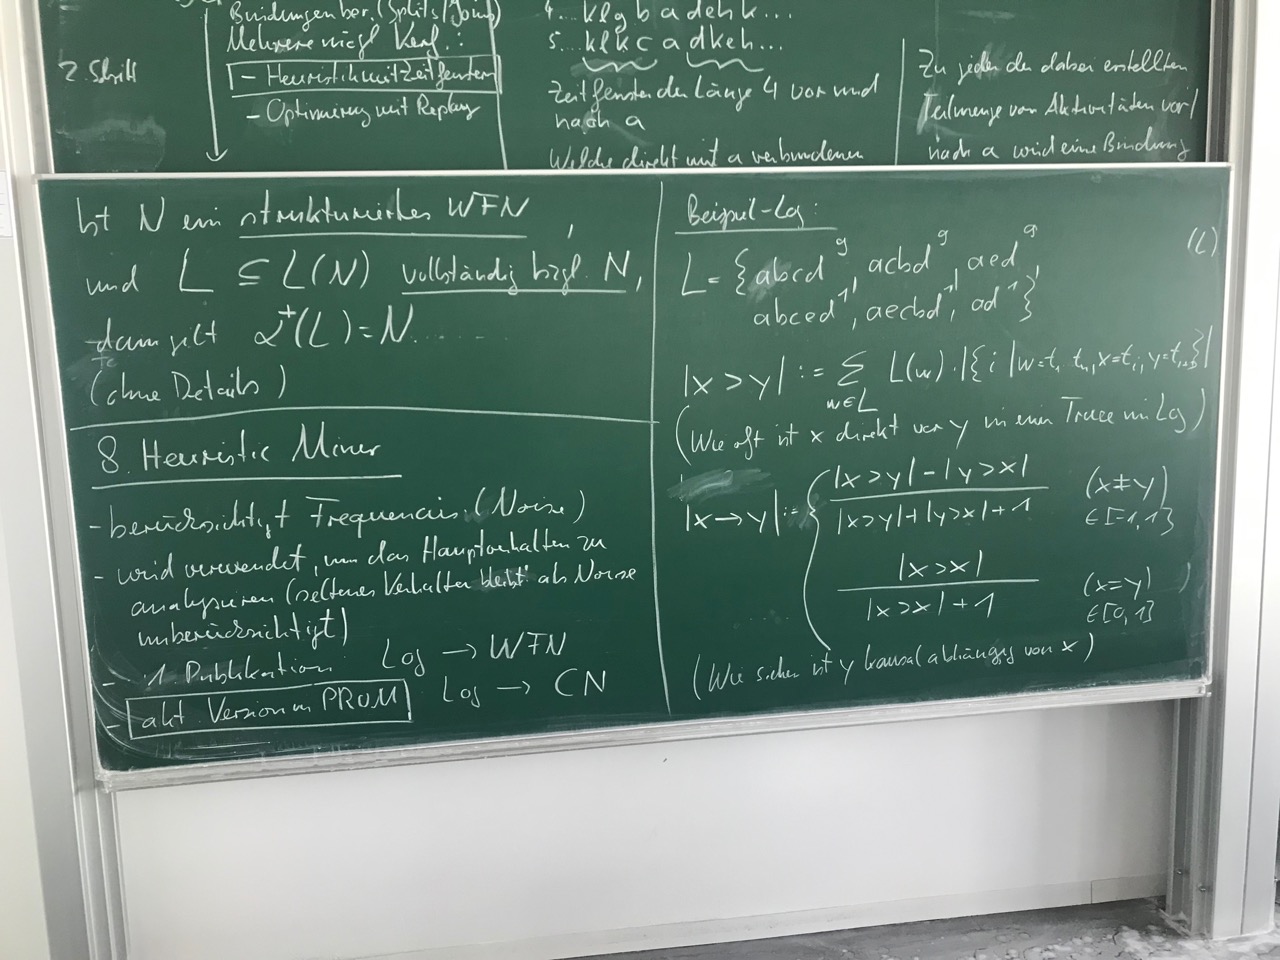 Bindungen ber. (Splits/Joins)
Mehrere mögl. Verf.:
2. Schritt
- Heuristik mit Zeitfenstern
- Optimierung mit Replay
4. ... k l g b a d e h k ...
5. ... k l k c a d k e h ...
Zeitfenster der Länge 4 vor und
nach a
Welche direkt mit a verbundenen
Zu jeder der dabei erstellten
Teilmenge von Aktivitäten vor/
nach a wird eine Bindung
Ist N ein strukturiertes WFN,
und L ⊆ L(N) vollständig bzgl. N,
dann gilt α⁺(L) = N.......
(ohne Details)
8. Heuristic Miner
- berücksichtigt Frequencies (Noise)
- wird verwendet, um das Hauptverhalten zu
analysieren (seltenes Verhalten bleibt als Noise
unberücksichtigt)
- 1. Publikation Log → WFN
- akt. Version in PROM Log → CN
Beispiel-Log:
(L)
L = {abcd⁹, acbd⁹, aed⁹,
abced¹, aecbd¹, ad¹}
|x > y| := Σ_{w∈L} L(w) · |{i | w=t₁ tₙ, x=tᵢ, y=tᵢ₊₁}|
(Wie oft ist x direkt vor y in einem Trace im Log)
|x → y| := { (|x>y| - |y>x|) / (|x>y| + |y>x| + 1) (x≠y) ∈ [-1, 1]
|x>x| / (|x>x| + 1) (x=y) ∈ [0, 1]
(Wie sicher ist y kausal abhängig von x)